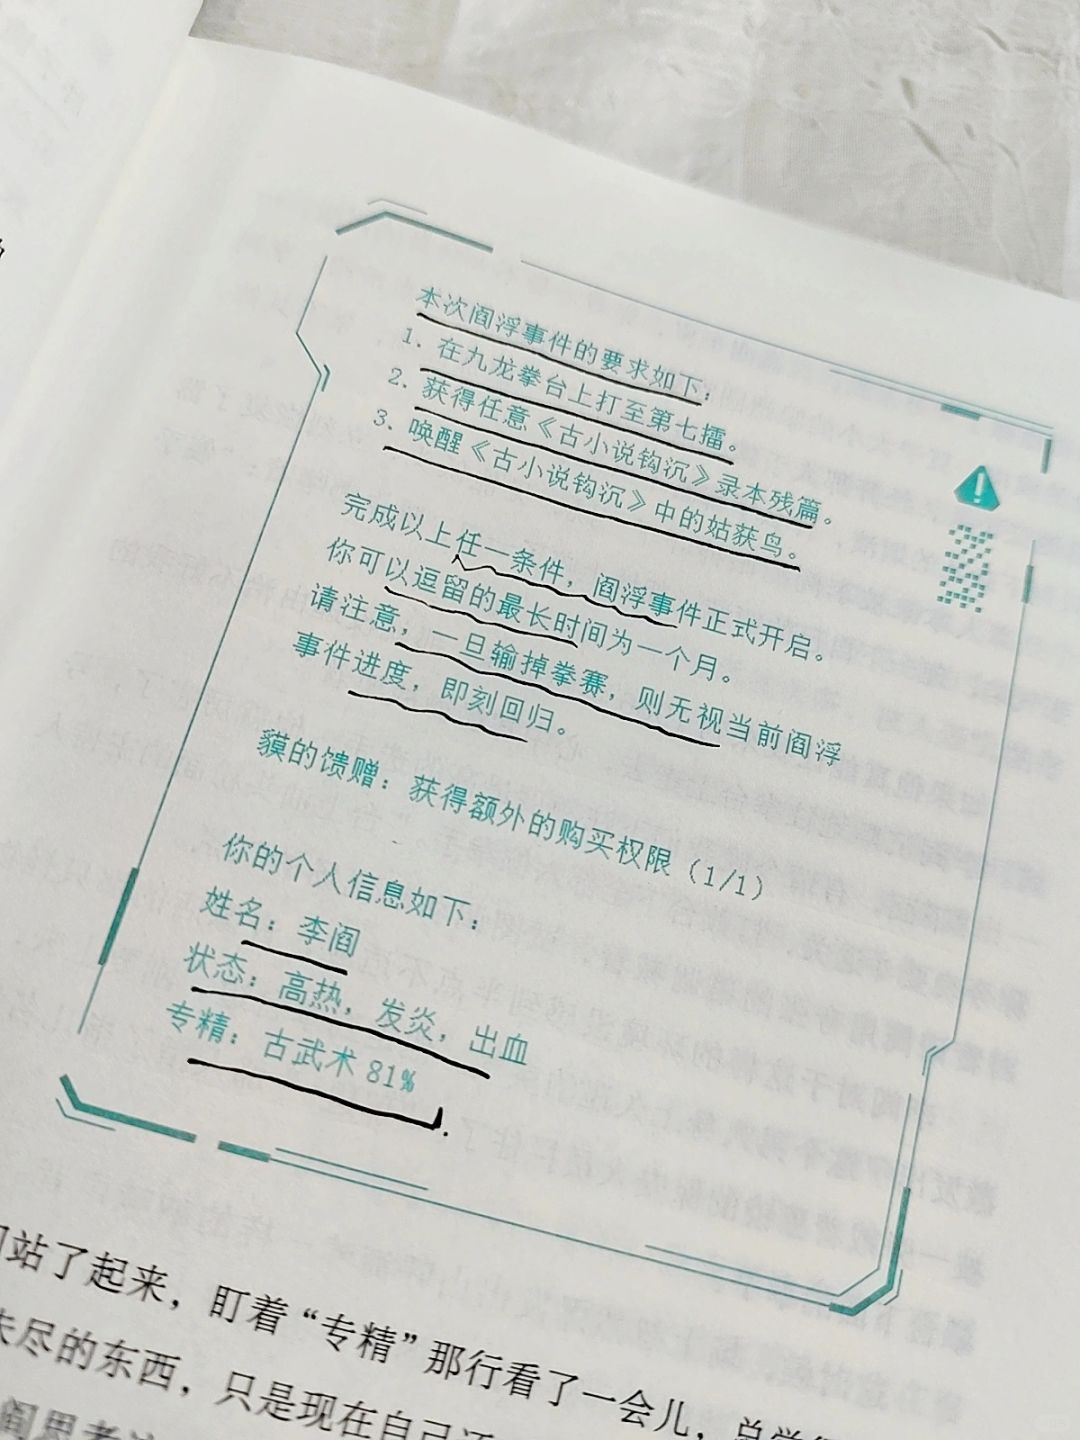 本次阎浮事件的要求如下：
1. 在九龙拳台上打至第七擂。
2. 获得任意《古小说钩沉》录本残篇。
3. 唤醒《古小说钩沉》中的姑获鸟。
完成以上任一条件，阎浮事件正式开启。
你可以逗留的最长时间为一个月。
请注意，一旦输掉拳赛，则无视当前阎浮
事件进度，即刻回归。
貘的馈赠：获得额外的购买权限（1/1）
你的个人信息如下：
姓名：李阎
状态：高热，发炎，出血
专精：古武术 81%
站了起来，盯着“专精”那行看了一会儿，总觉得
未尽的东西，只是现在自己还
阎思考